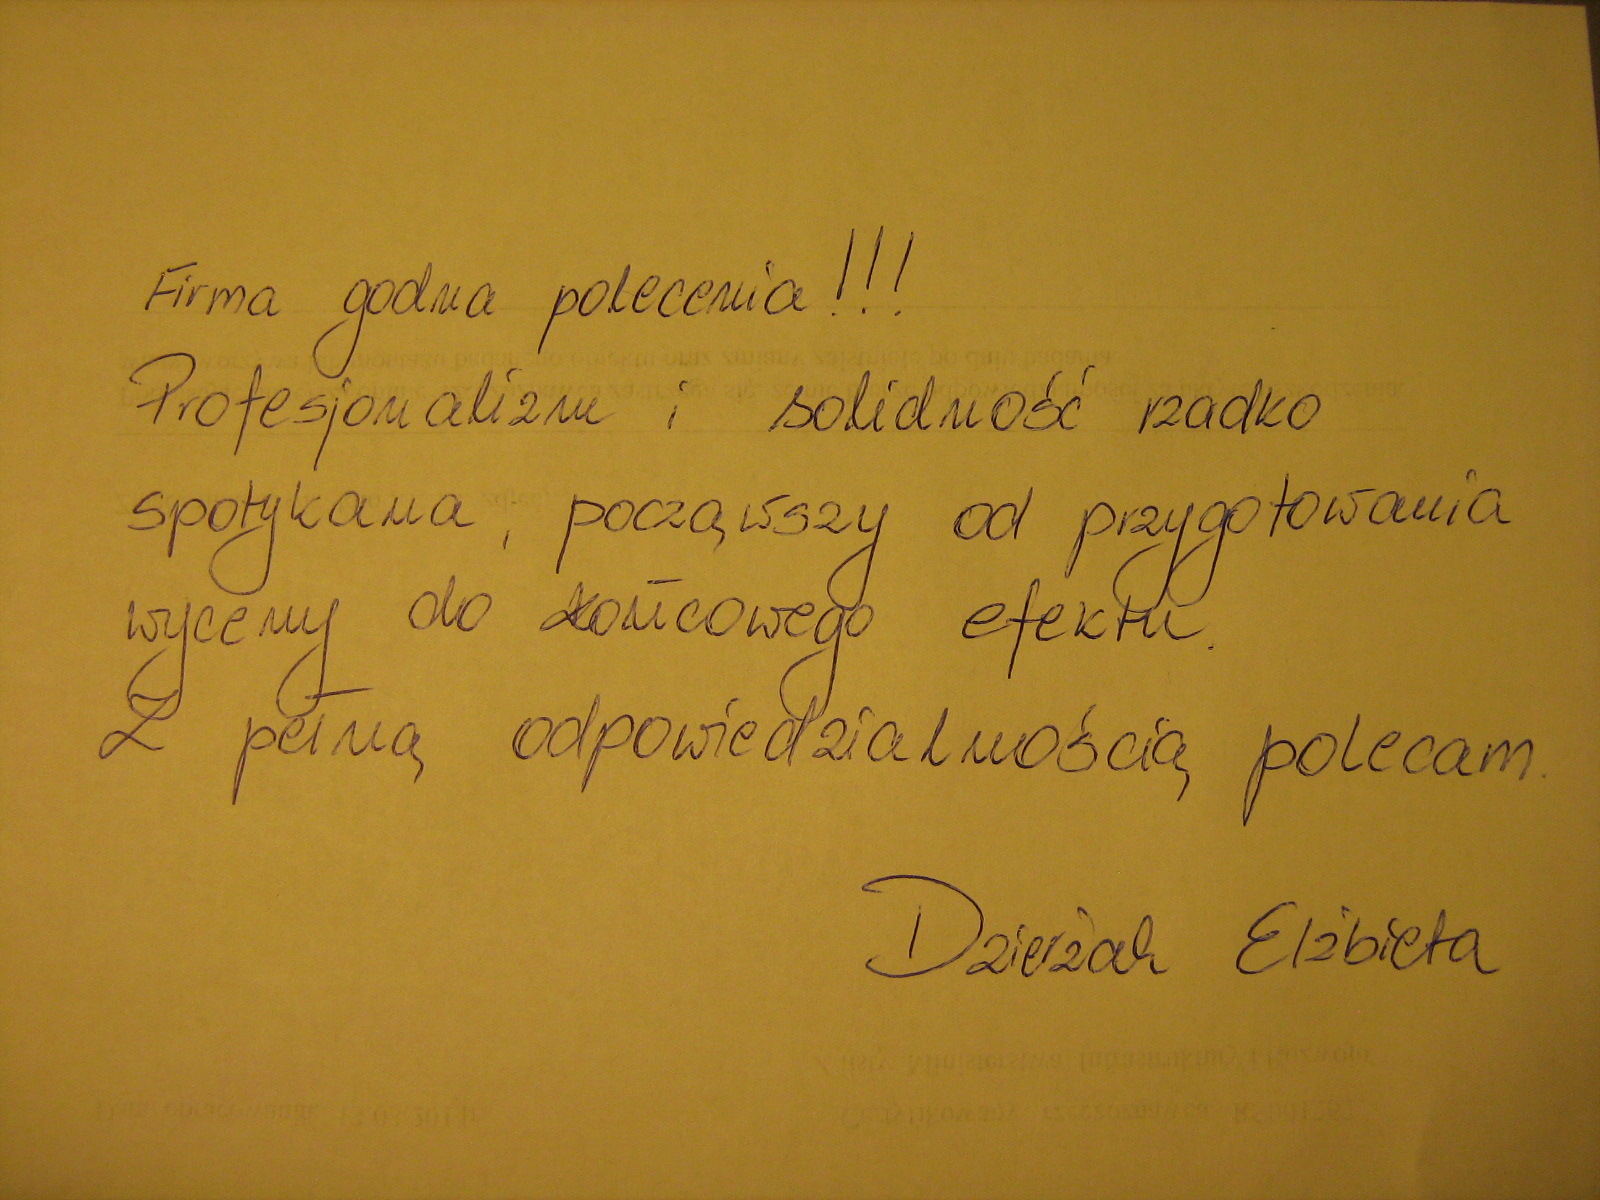 Firma godna polecenia!!!
Profesjonalizm i solidność rzadko
spotykana, począwszy od przygotowania
wyceny do końcowego efektu.
Z pełną odpowiedzialnością polecam.
Dzierżak Elżbieta